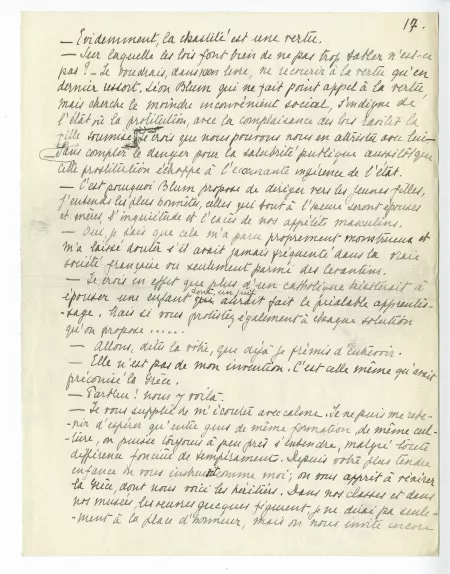 17.
— Evidemment, la chasteté est une vertu.
— Sur laquelle les lois font bien de ne pas trop tabler n'est-ce
pas ? — Je voudrais, dans mon livre, ne recourir à la vertu qu'en
dernier ressort. Léon Blum qui ne fait point appel à la vertu
mais cherche le moindre inconvénient social, s'indigne de
l'état où la prostitution, avec la complaisance des lois avilit la
fille soumise. Je crois que nous pouvons nous en attrister avec lui —
Sans compter le danger pour la salubrité publique aussitôt que
cette prostitution échappe à l'écœurante ingérence de l'état.
— C'est pourquoi Blum propose de diriger vers les jeunes filles,
j'entends les plus honnêtes, celles qui tout à l'heure seront épouses
et mères, l'inquiétude et l'excès de nos appétits masculins.
— Oui, je sais que cela m'a paru proprement monstrueux et
m'a laissé douter s'il avait jamais fréquenté dans la vraie
société française ou seulement parmi des levantins.
— Je crois en effet que plus d'un catholique hésiterait à
épouser une enfant dont un juif aurait fait le préalable apprentis-
sage. Mais si vous protestez également à chaque solution
qu'on propose .....
— Allons, dites la vôtre, que déjà je frémis d'entrevoir.
— Elle n'est pas de mon invention. C'est celle même qu'avait
préconisé la Grèce.
— Parbleu ! nous y voilà.
— Je vous supplie de m'écouter avec calme. Je ne puis me rete-
nir d'espérer qu'entre gens de même formation, de même cul-
ture, on puisse toujours à peu près s'entendre, malgré toute
différence foncière de tempérament. Depuis votre plus tendre
enfance on vous instruisit comme moi ; on vous apprit à vénérer
la Grèce, dont nous voici les héritiers. Dans nos classes et dans
nos musées, les œuvres grecques figurent, je ne dirai pas seule-
ment à la place d'honneur, mais on nous invite encore